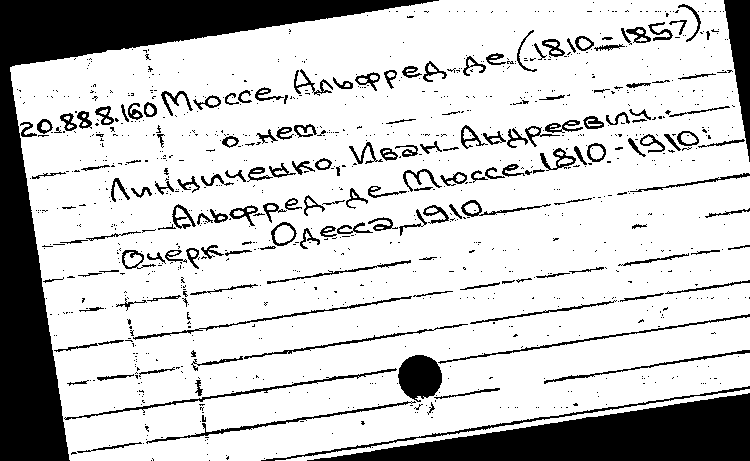 20.88.8.160 Мюссе, Альфред де (1810-1857),
о нем.
Линниченко, Иван Андреевич.
Альфред де Мюссе. 1810-1910:
Очерк. - Одесса, 1910.